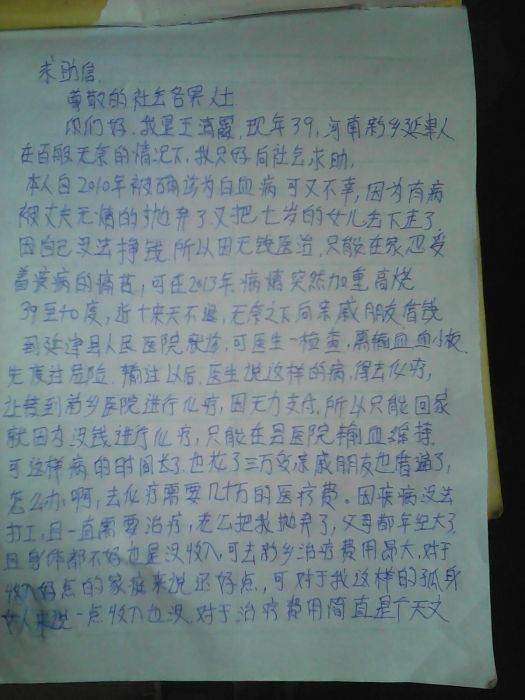 求助信
尊敬的社会各界人士
你们好.我是王清霞,现年39,河南新乡延津人
在百般无奈的情况下,我只好向社会求助.
本人自2010年被确诊为白血病可又不幸,因为有病
被丈夫无情的抛弃了又把七岁的女儿丢下走了
因自己没法挣钱.所以因无钱医治,只能在家忍受
着疾病的痛苦,可在2013年病情突然加重高烧
39至40度,近十来天不退,无奈之下向亲戚朋友借钱
到延津县人民医院就诊,可医生一检查,需输血血小板
先度过危险.输过以后.医生说这样的病,得去化疗,
让转到新乡医院进行化疗,因无力支付.所以只能回家
就因为没钱进行化疗,只能在县医院输血维持
可这样病的时间长了.也花了三万多亲戚朋友也借遍了,
怎么办啊,去化疗需要几十万的医疗费.因疾病没法
打工,且一直需要治疗,老公把我抛弃了,父母都年纪大了
且身体都不好也是没收入,可去新乡治疗费用昂大,对于
收入好点的家庭来说还好点,可对于我这样的孤身
女人来说一点收入也没.对于治疗费用简直是个天文